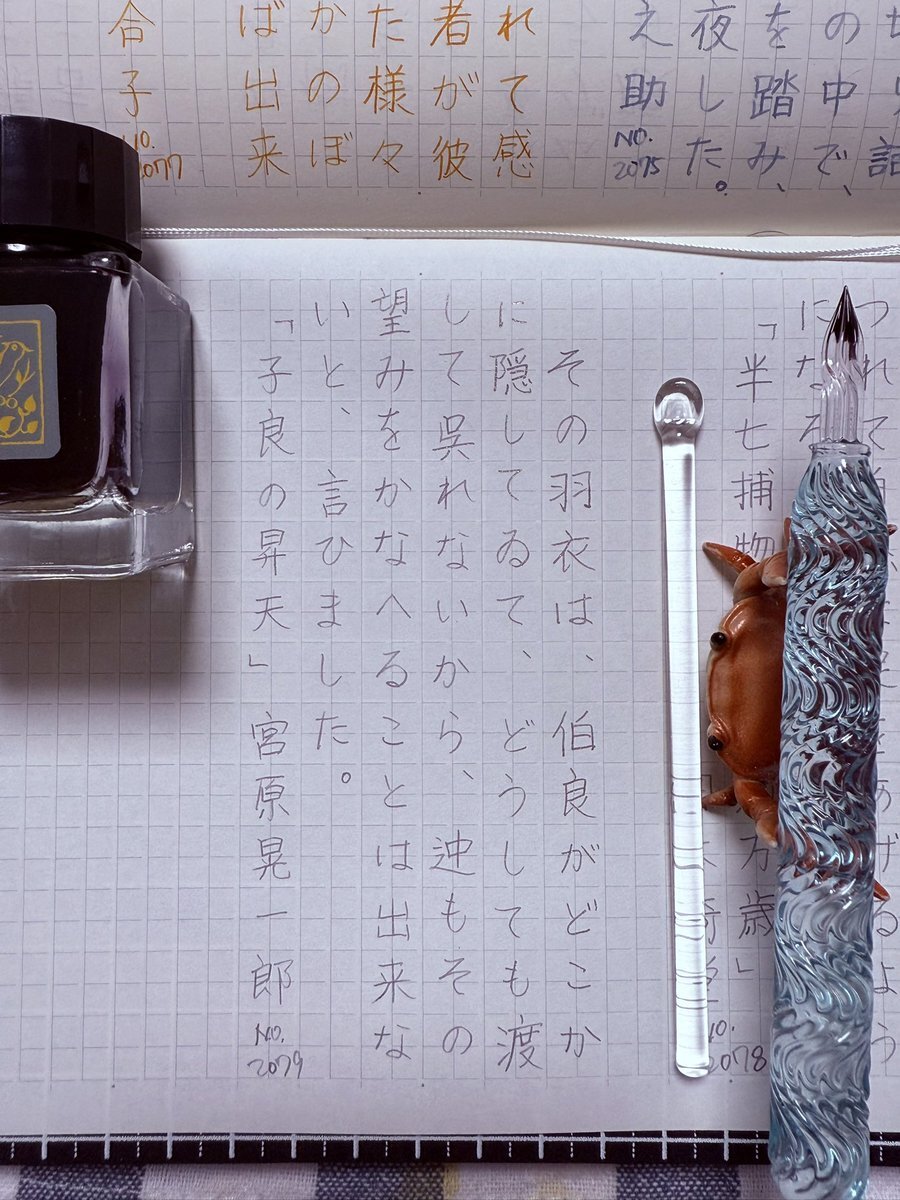 詰
の中で、
を踏み、
夜した。
え助
NO.
2075
れて感
者が彼
た様々
かのぼ
ば出来
合子
NO.
2077
つれて
あげるよう
になる
「半七捕物
万歳」
NO.
2078
その羽衣は、伯良がどこか
に隠してゐて、どうしても渡
して呉れないから、迚もその
望みをかなへることは出来な
いと、言ひました。
「子良の昇天」宮原晃一郎
NO.
2079